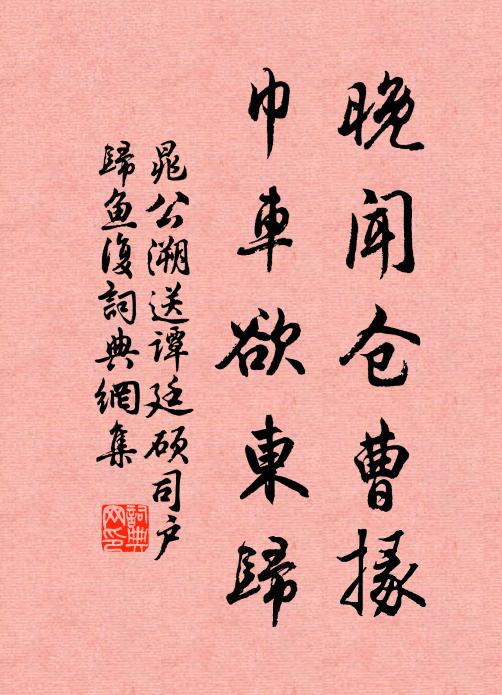 晚聞仓曹掾
巾車欲東歸
晁公溯送谭廷硕司户
歸鱼復詞典網集
詞典网印